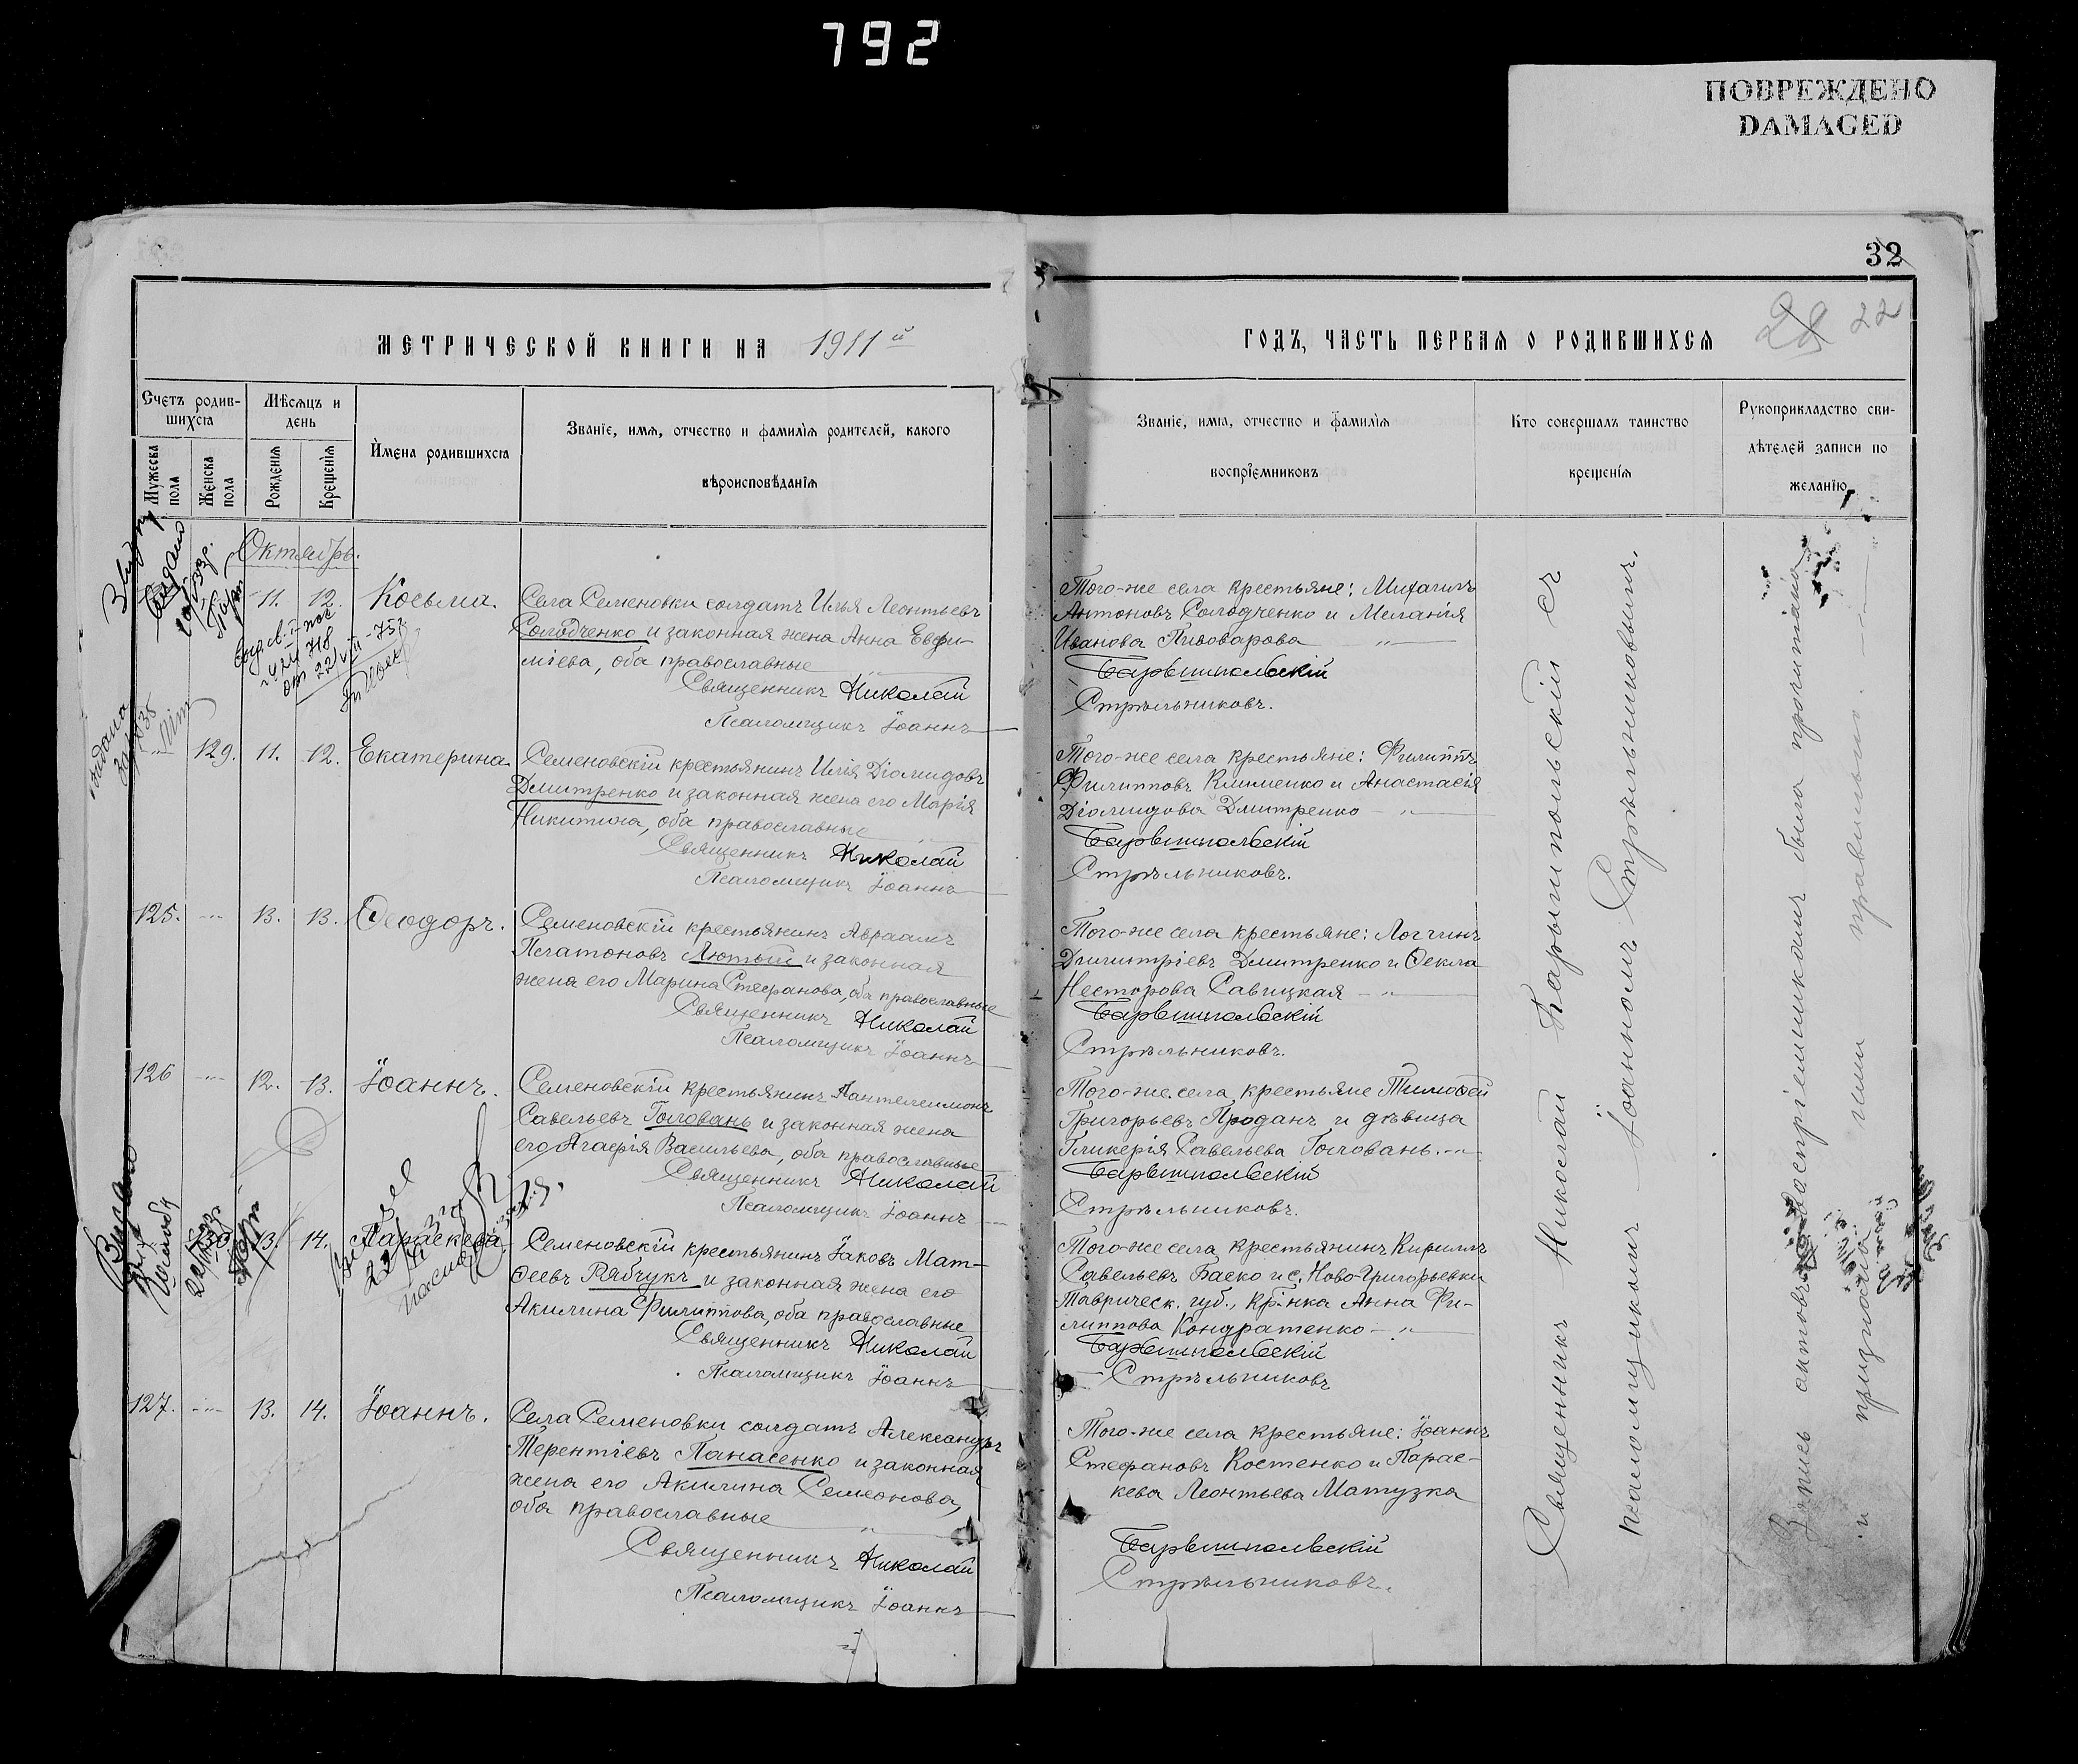 792
ПОВРЕЖДЕНО
DAMAGED
32
22
МЕТРИЧЕСКОЙ КНИГИ НА 1911й
ГОДЪ, ЧАСТЬ ПЕРВАЯ О РОДИВШИХСЯ
Счетъ родив-
шихся
Мужеска пола
Женска пола
Мѣсяцъ и
день
Рожденія
Крещенія
Имена родившихся
Званіе, имя, отчество и фамилія родителей, какого
вѣроисповѣданія
Званіе, имя, отчество и фамилія
воспріемниковъ
Кто совершалъ таинство
крещенія
Рукоприкладство сви-
дѣтелей записи по
желанію
Октябрь.
11. 12. Косьма.
Села Семеновки солдатъ Илья Леонтьевъ
Солодченко и законная жена Анна Евфи-
міева, оба православные
Священникъ Николай
Псаломщикъ Іоаннъ
Того-же села крестьяне: Михаилъ
Антоновъ Солодченко и Меланія
Иванова Пивоварова
Барышпольскій
Стрѣльниковъ.
129. 11. 12. Екатерина.
Семеновскій крестьянинъ Илія Діомидовъ
Дмитренко и законная жена его Марія
Никитина, оба православные
Священникъ Николай
Псаломщикъ Іоаннъ
Того-же села крестьяне: Филиппъ
Филипповъ Клименко и Анастасія
Діомидова Дмитренко
Барышпольскій
Стрѣльниковъ.
125. 13. 13. Ѳеодоръ.
Семеновскій крестьянинъ Авраамъ
Платоновъ Лютый и законная
жена его Марина Стефанова, оба православные
Священникъ Николай
Псаломщикъ Іоаннъ
Того-же села крестьяне: Логгинъ
Димитріевъ Дмитренко и Ѳекла
Несторова Савицкая
Барышпольскій
Стрѣльниковъ.
126 12. 13. Іоаннъ.
Семеновскій крестьянинъ Пантелеимонъ
Савельевъ Головань и законная жена
его Агафія Васильева, оба православные
Священникъ Николай
Псаломщикъ Іоаннъ
Того-же села крестьяне Тимоѳей
Григорьевъ Проданъ и дѣвица
Гликерія Савельева Головань.
Барышпольскій
Стрѣльниковъ.
13. 14. Параскева
Семеновскій крестьянинъ Іаковъ Мат-
ѳеевъ Рябчукъ и законная жена его
Акилина Филиппова, оба православные
Священникъ Николай
Псаломщикъ Іоаннъ
Того-же села крестьянинъ Кириллъ
Савельевъ Баско и с. Ново-Григорьевки
Таврическ. губ., кр-нка Анна Фи-
липпова Кондратенко
Барышпольскій
Стрѣльниковъ
127. 13. 14. Іоаннъ.
Села Семеновки солдатъ Александръ
Терентіевъ Панасенко и законная
жена его Акилина Семеонова,
оба православные
Священникъ Николай
Псаломщикъ Іоаннъ
Того-же села крестьяне: Іоаннъ
Стефановъ Костенко и Парас-
кева Леонтьева Матузка
Барышпольскій
Стрѣльниковъ.
Священникъ Николай Барышпольскій съ
псаломщикомъ Іоанномъ Стрѣльниковымъ.
Запись актовъ воспріемникамъ была прочитана
и признана ими правильною.